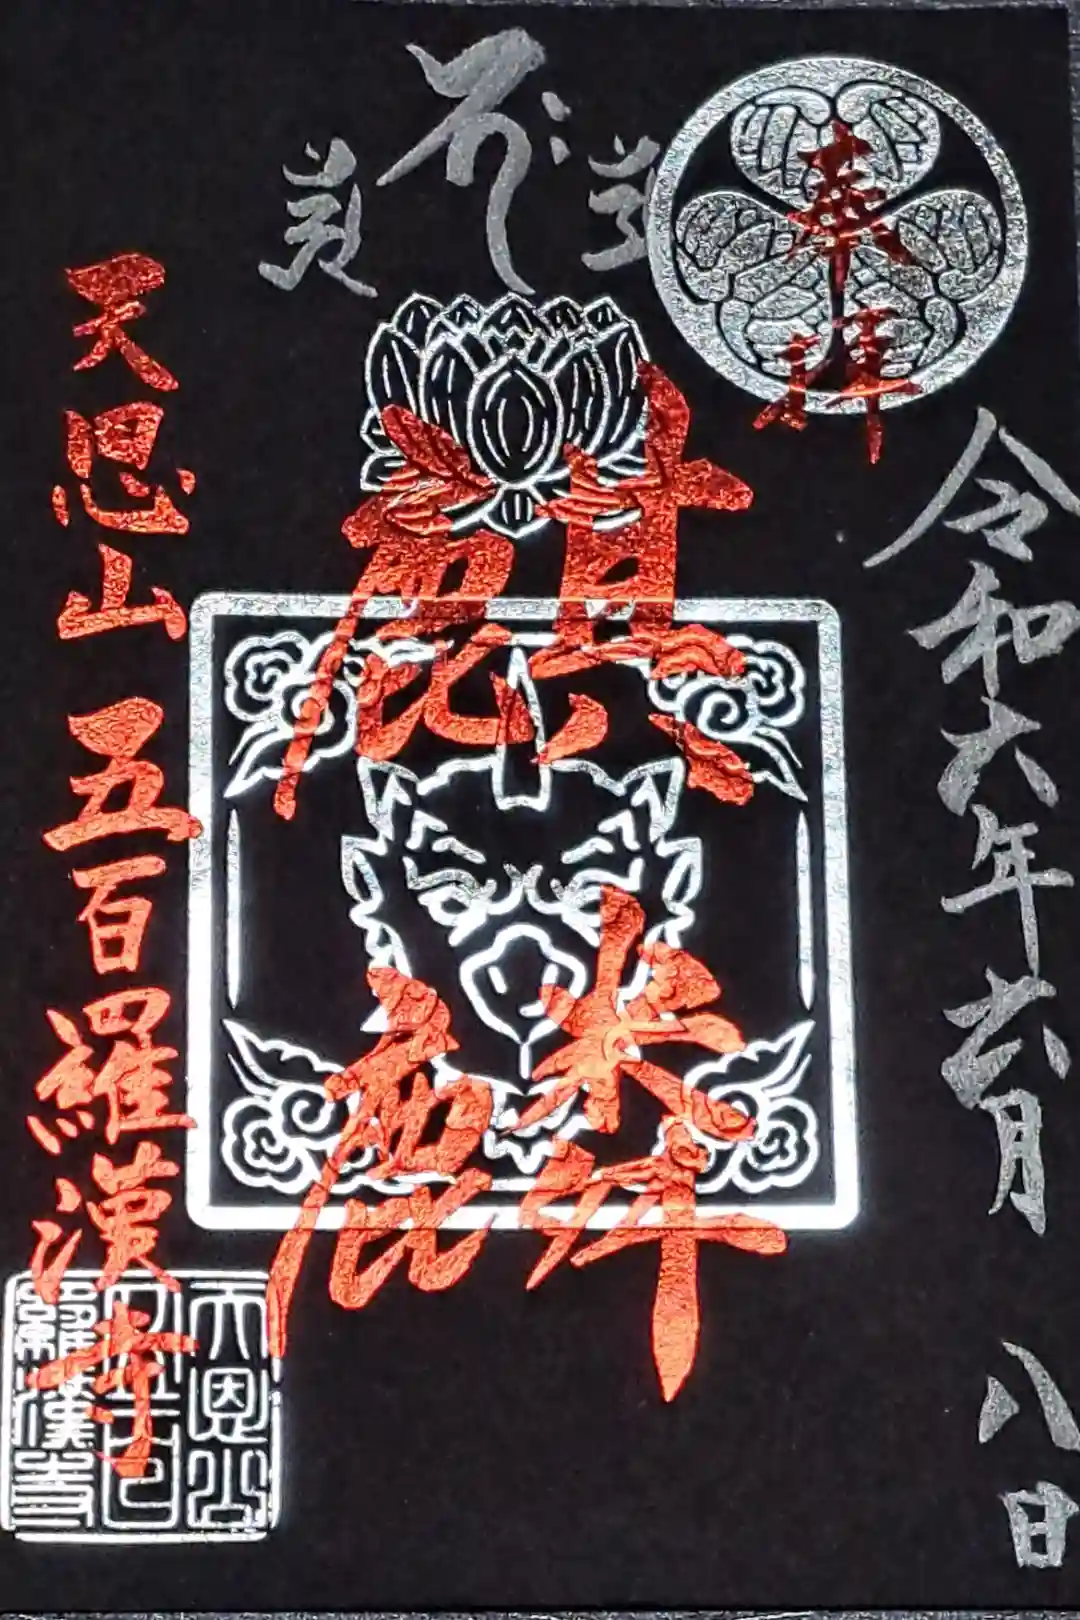 奉拝
令和六年六月八日
麒麟
天恩山 五百羅漢寺
天恩山
五百
羅漢寺